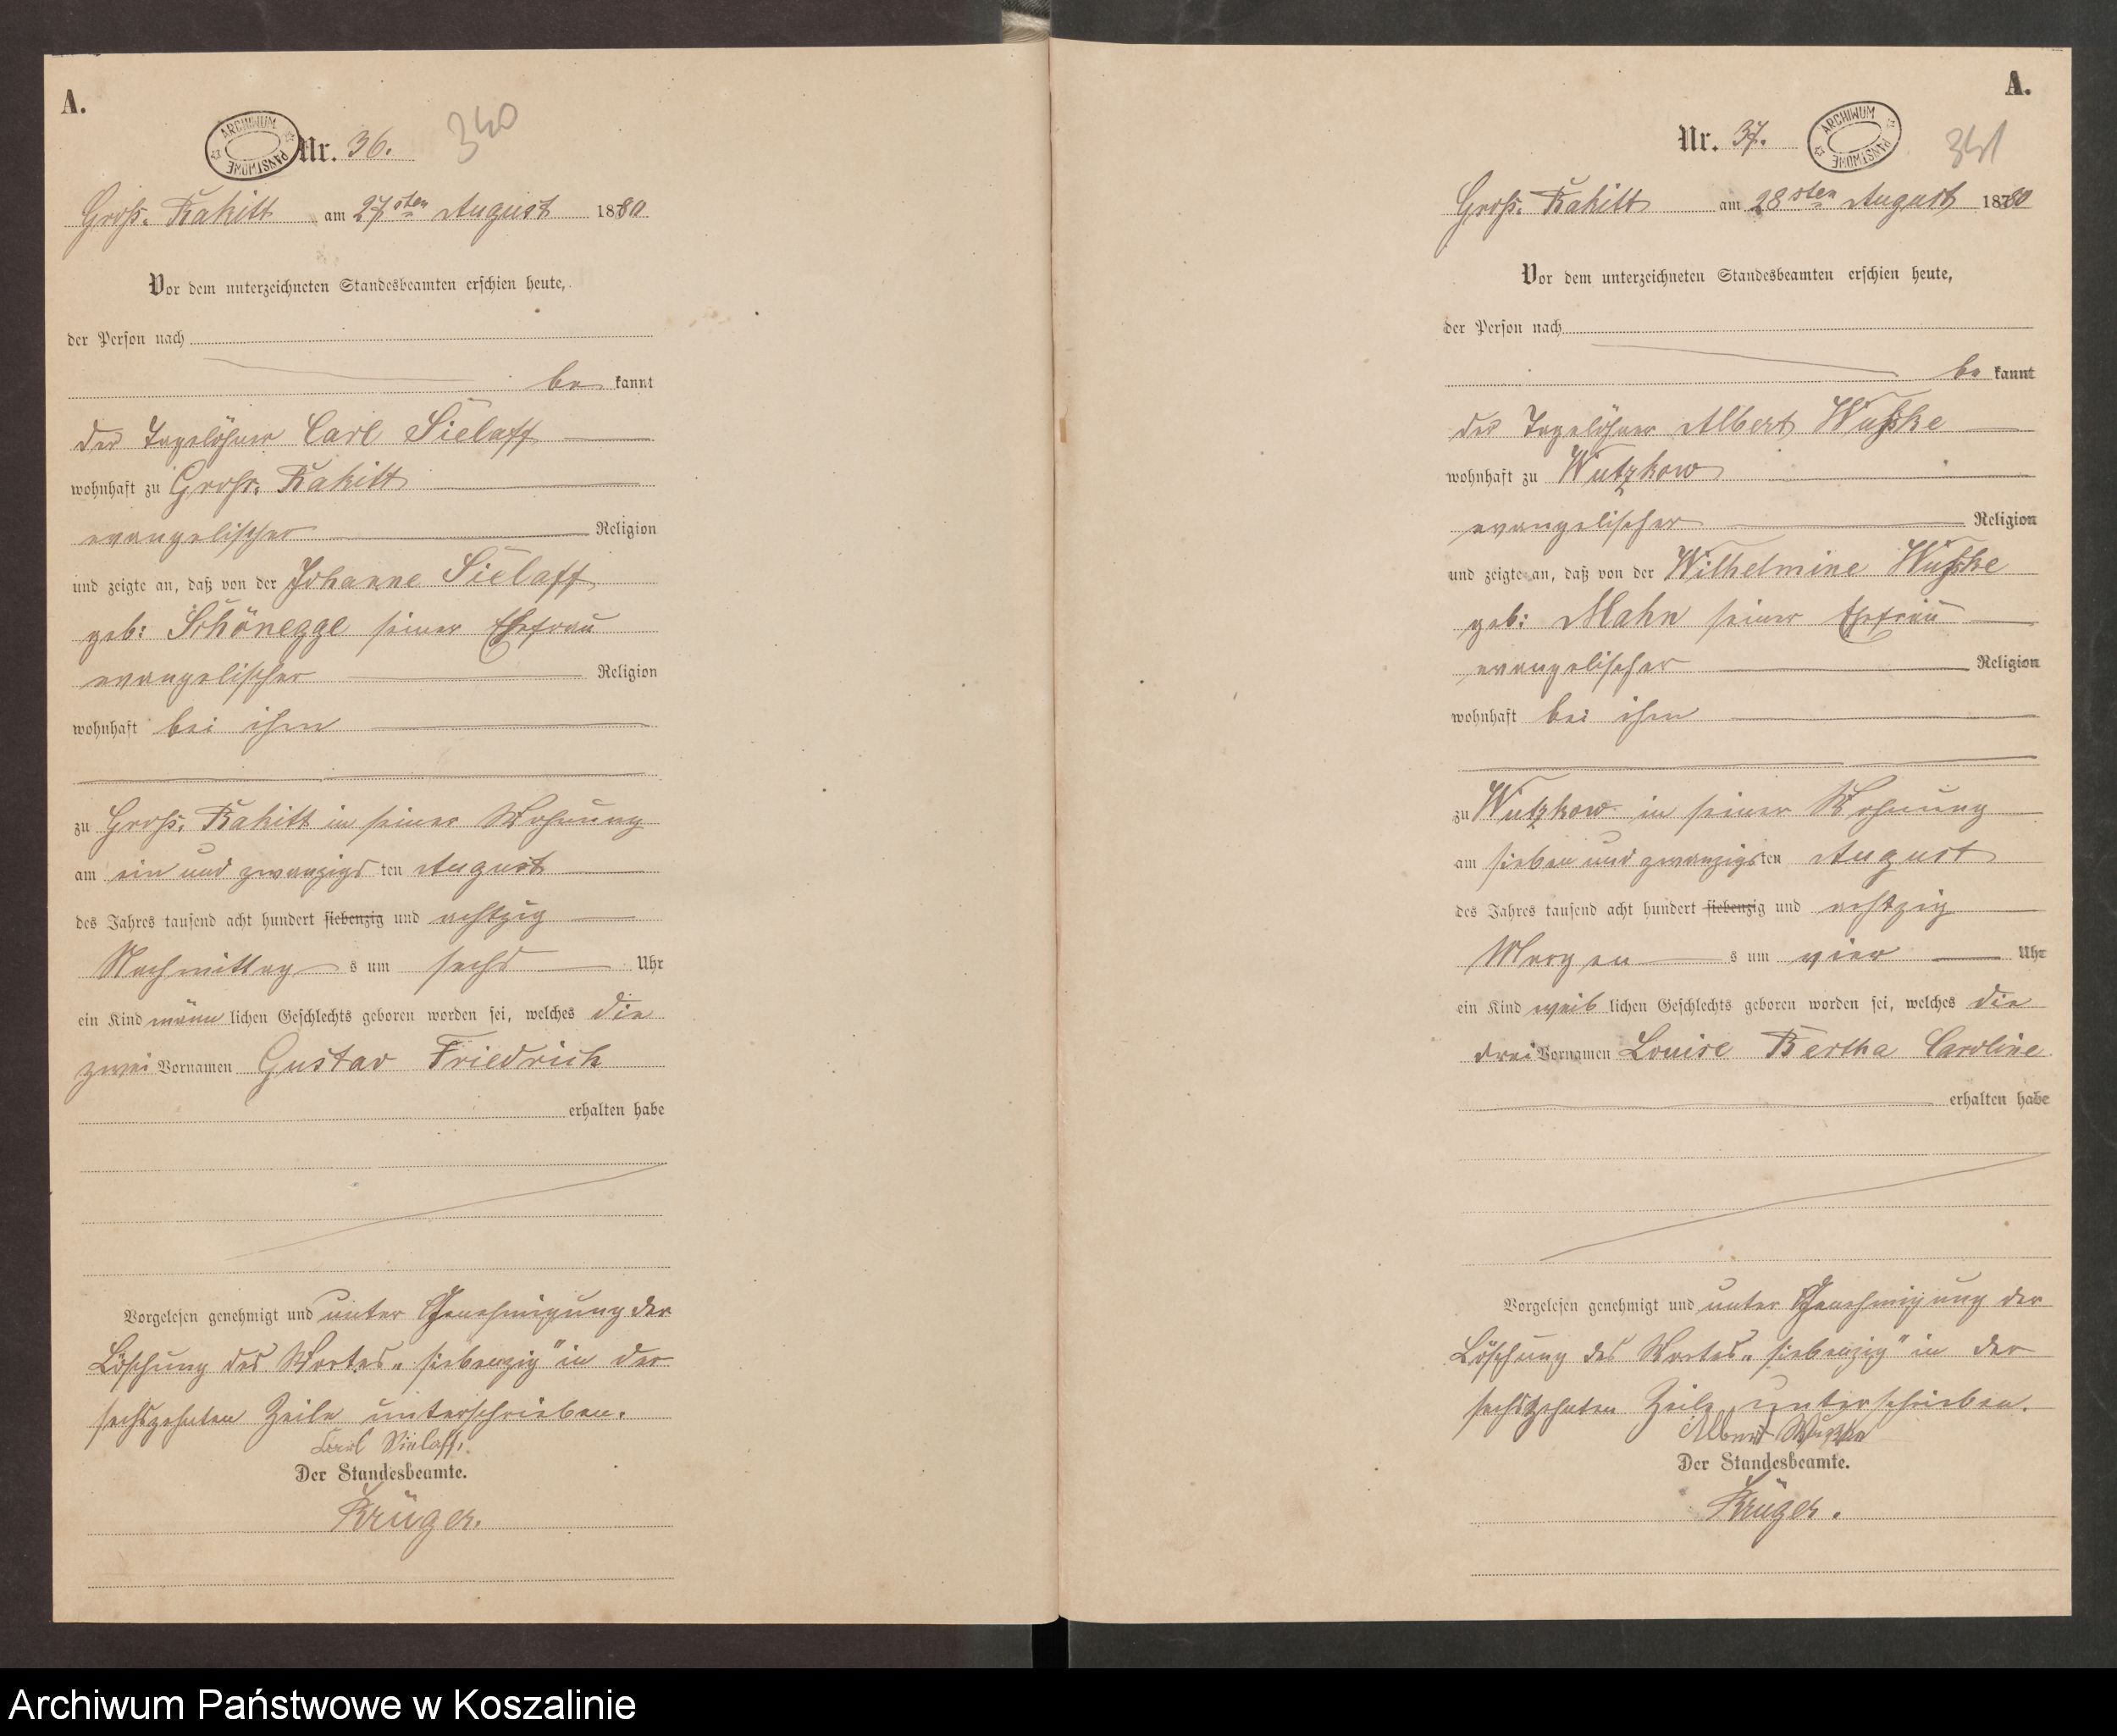 A.
ARCHIWUM PAŃSTWOWE
Nr. 36.
340
Groß. Rakitt am 27sten August 1880
Vor dem unterzeichneten Standesbeamten erschien heute,
der Person nach
be kannt
der Tagelöhner Carl Sielaff
wohnhaft zu Groß. Rakitt
evangelischer Religion
und zeigte an, daß von der Johanne Sielaff
geb: Schönegge seiner Ehefrau
evangelischer Religion
wohnhaft bei ihm
zu Groß. Rakitt in seiner Wohnung
am ein und zwanzigs ten August
des Jahres tausend acht hundert siebenzig und achtzig
Nachmittag s um sechs Uhr
ein Kind männ lichen Geschlechts geboren worden sei, welches die
zwei Vornamen Gustav Friedrich
erhalten habe
Vorgelesen genehmigt und unter Genehmigung der
Löschung des Wortes „siebenzig" in der
sechszehnten Zeile unterschrieben.
Carl Sielaff.
Der Standesbeamte.
Krüger.
A.
Nr. 37.
ARCHIWUM PAŃSTWOWE
341
Groß. Rakitt am 28sten August 1880
Vor dem unterzeichneten Standesbeamten erschien heute,
der Person nach
be kannt
der Tagelöhner Albert Wußke
wohnhaft zu Wutzkow
evangelischer Religion
und zeigte an, daß von der Wilhelmine Wußke
geb: Mahn seiner Ehefrau
evangelischer Religion
wohnhaft bei ihm
zu Wutzkow in seiner Wohnung
am sieben und zwanzigs ten August
des Jahres tausend acht hundert siebenzig und achtzig
Morgen s um vier Uhr
ein Kind weib lichen Geschlechts geboren worden sei, welches die
drei Vornamen Louise Bertha Caroline
erhalten habe
Vorgelesen genehmigt und unter Genehmigung der
Löschung des Wortes „siebenzig" in der
sechszehnten Zeile unterschrieben.
Albert Wußke
Der Standesbeamte.
Krüger.
Archiwum Państwowe w Koszalinie